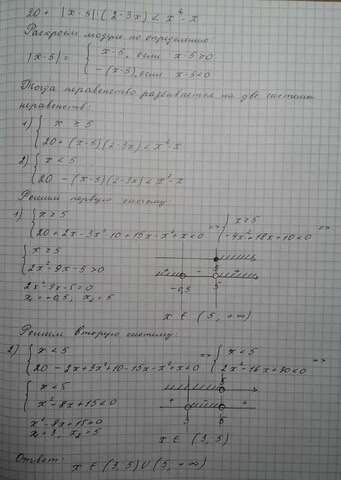 20 + |x-5|(2-3x) < x² - x
Раскроем модуль по определению
|x-5| = { x-5, если x-5≥0
-(x-5), если x-5<0
Тогда неравенство разбивается на две системы
неравенств:
1) { x ≥ 5
20+(x-5)(2-3x)<x²-x
2) { x < 5
20 -(x-5)(2-3x)<x²-x
Решим первую систему
1) { x ≥ 5 => { x ≥ 5
20+2x-3x²-10+15x-x²+x<0 -4x²+18x+10<0
{ x ≥ 5
2x²-9x-5>0
2x²-9x-5=0
x₁=-0,5, x₂=5
5
-0,5 5
x ∈ (5, +∞)
Решим вторую систему:
2) { x < 5 => { x < 5 =>
20-2x+3x²+10-15x-x²+x<0 2x²-16x+30<0
{ x < 5
x²-8x+15<0
x²-8x+15=0
x₁=3, x₂=5
5
3 5
x ∈ (3,5)
Ответ:
x ∈ (3,5)∪(5,+∞)